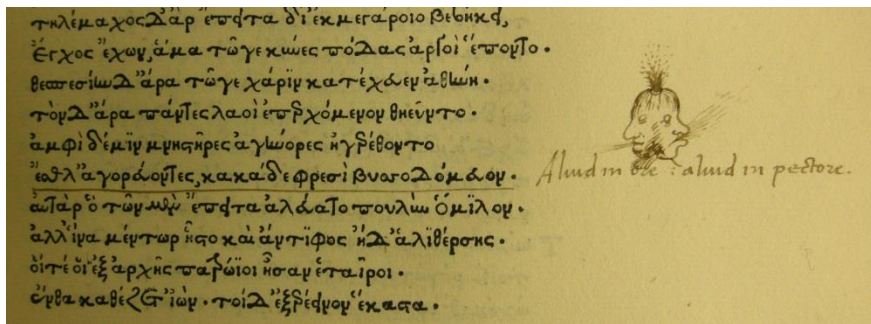 τηλέμαχος δ᾽ ἂρ ἔπειτα δι᾽ ἐκ μεγάροιο βεβήκει,
ἔγχος ἔχων, ἅμα τῶγε κύνες πόδας ἀργοὶ ἕποντο.
θεσπεσίην δ᾽ ἄρα τῶγε χάριν κατέχευεν ἀθήνη.
τὸν δ᾽ ἄρα πάντες λαοὶ ἐπερχόμενον θηεῦντο.
ἀμφὶ δέ μιν μνηστῆρες ἀγήνορες ἠγερέθοντο
ἔσθλ᾽ ἀγορεύοντες, κακὰ δὲ φρεσὶ βυσσοδόμευον. Aliud in ore : aliud in pectore.
αὐτὰρ ὁ τῶν μὲν ἔπειτα ἀλεύατο πουλὺν ὅμιλον.
ἀλλ᾽ ἵνα μέντωρ ἧστο καὶ ἄντιφος ἠδ᾽ ἁλιθέρσης.
οἵ τέ οἱ ἐξ ἀρχῆς πατρώϊοι ἦσαν ἑταῖροι.
ἔνθα καθέζετ᾽ ἰών. τοὶ δ᾽ ἐξερέεινον ἕκαστα.